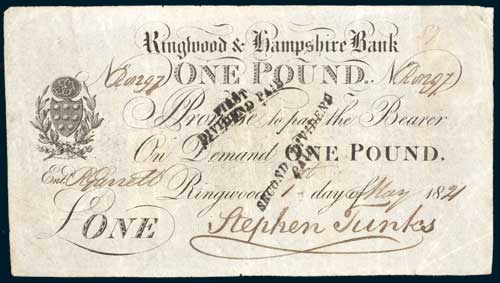 Ringwood & Hampshire Bank
ONE POUND.
I Promise to pay the Bearer
On Demand ONE POUND.
Ringwood 1st day of May 1821
£ONE
Stephen Tunks
FIRST
DIVIDEND PAID
SECOND DIVIDEND
PAID